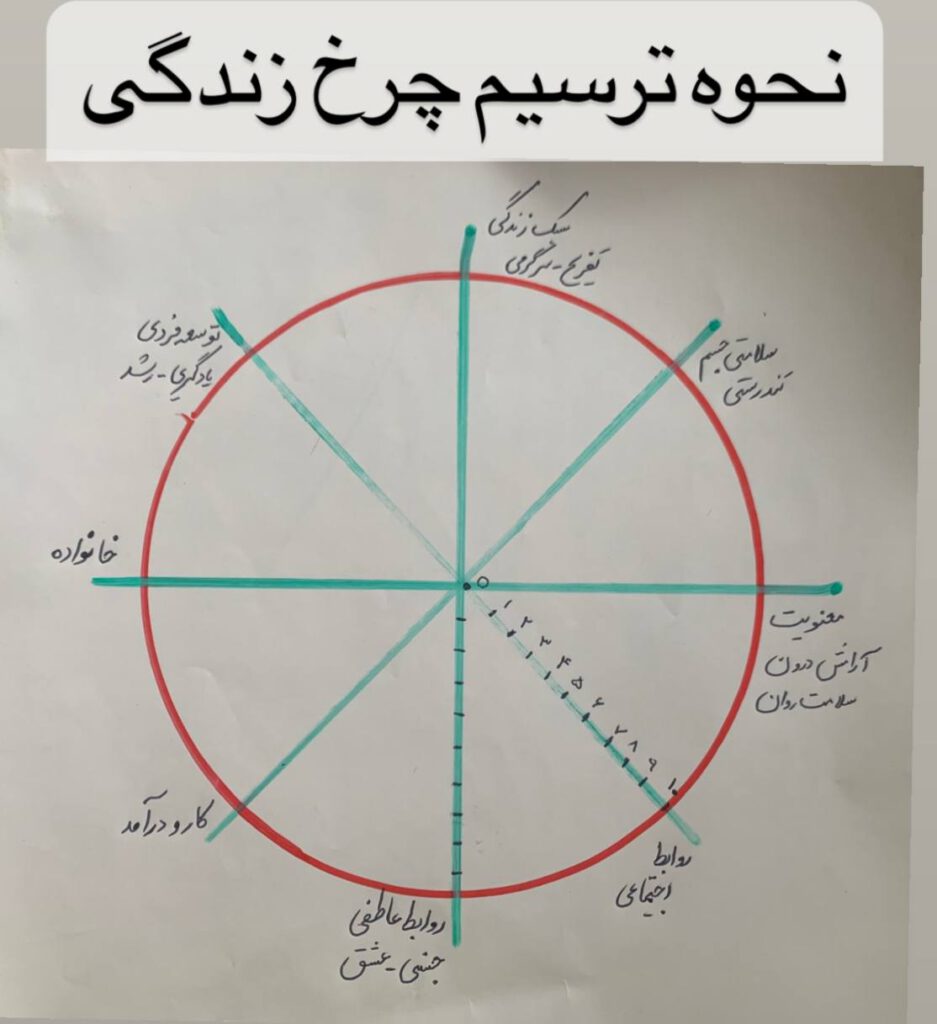 نحوه ترسیم چرخ زندگی
سبک زندگی
تفریح - سرگرمی
سلامتی جسم
تندرستی
توسعه فردی
یادگیری - رشد
خانواده
معنویت
آرامش درون
سلامت روان
۰
۱
۲
۳
۴
۵
۶
۷
۸
۹
۱۰
کار و درآمد
روابط
اجتماعی
روابط عاطفی
جنسی - عشق